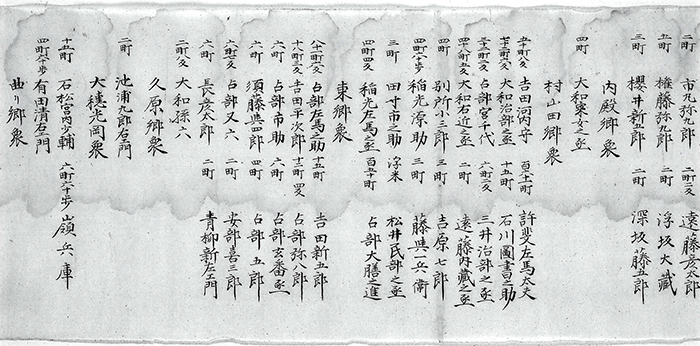 二町 市九弥九郎 遠藤彦太郎
五町 権藤弥九郎 二町 浮坂大藏
三町 櫻井新五郎 二町 深坂藤五郎
内殿郷衆
四町 大和 之丞
村山田郷衆
吉田河内守 許斐左馬太夫
大和治部之丞 十五町 石川圖書之助
占部宮千代 六町二反 三井治部之丞
大和右近之丞 遠藤内藏之丞
四町 別所小三郎 三町 吉原七郎
四町六十歩 稲光源助 三町 藤與一兵衛
三町 田寸市之助 浮米 松井民部之丞
四町四反 稲光左馬之丞 百五十町 占部大膳之進
東郷衆
占部左馬之助 十五町 吉田新五郎
吉田平次郎 十二町四反 占部弥八郎
六町 占部市助 六町 占部玄番丞
六町 須藤與四郎 四町 占部五郎
六町二反 占部又六 二町 安部喜三郎
六町 長彦太郎 二町 青柳新左ヱ門
二町八反 大和孫六
久原郷衆
二町 池浦九郎右ヱ門
大穂光岡衆
十五町 石松宮内少輔 六町六十歩 嶺兵庫
四町六十歩 有田清右ヱ門
曲り郷衆